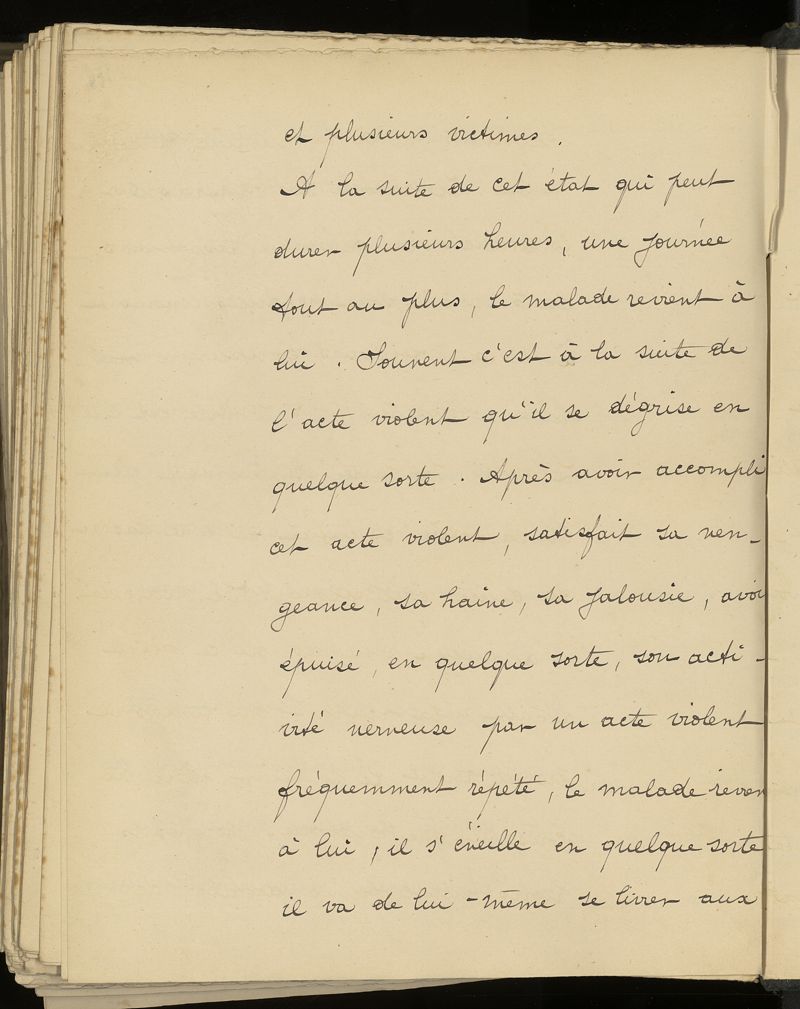 et plusieurs victimes.
A la suite de cet état qui peut
durer plusieurs heures, une journée
tout au plus, le malade revient à
lui. Souvent c'est à la suite de
l'acte violent qu'il se dégrise en
quelque sorte. Après avoir accompli
cet acte violent, satisfait sa ven-
geance, sa haine, sa jalousie, avoi
épuisé, en quelque sorte, son acti-
vité nerveuse par un acte violent
fréquemment répété, le malade revien
à lui, il s'éveille en quelque sorte
il va de lui-même se livrer aux